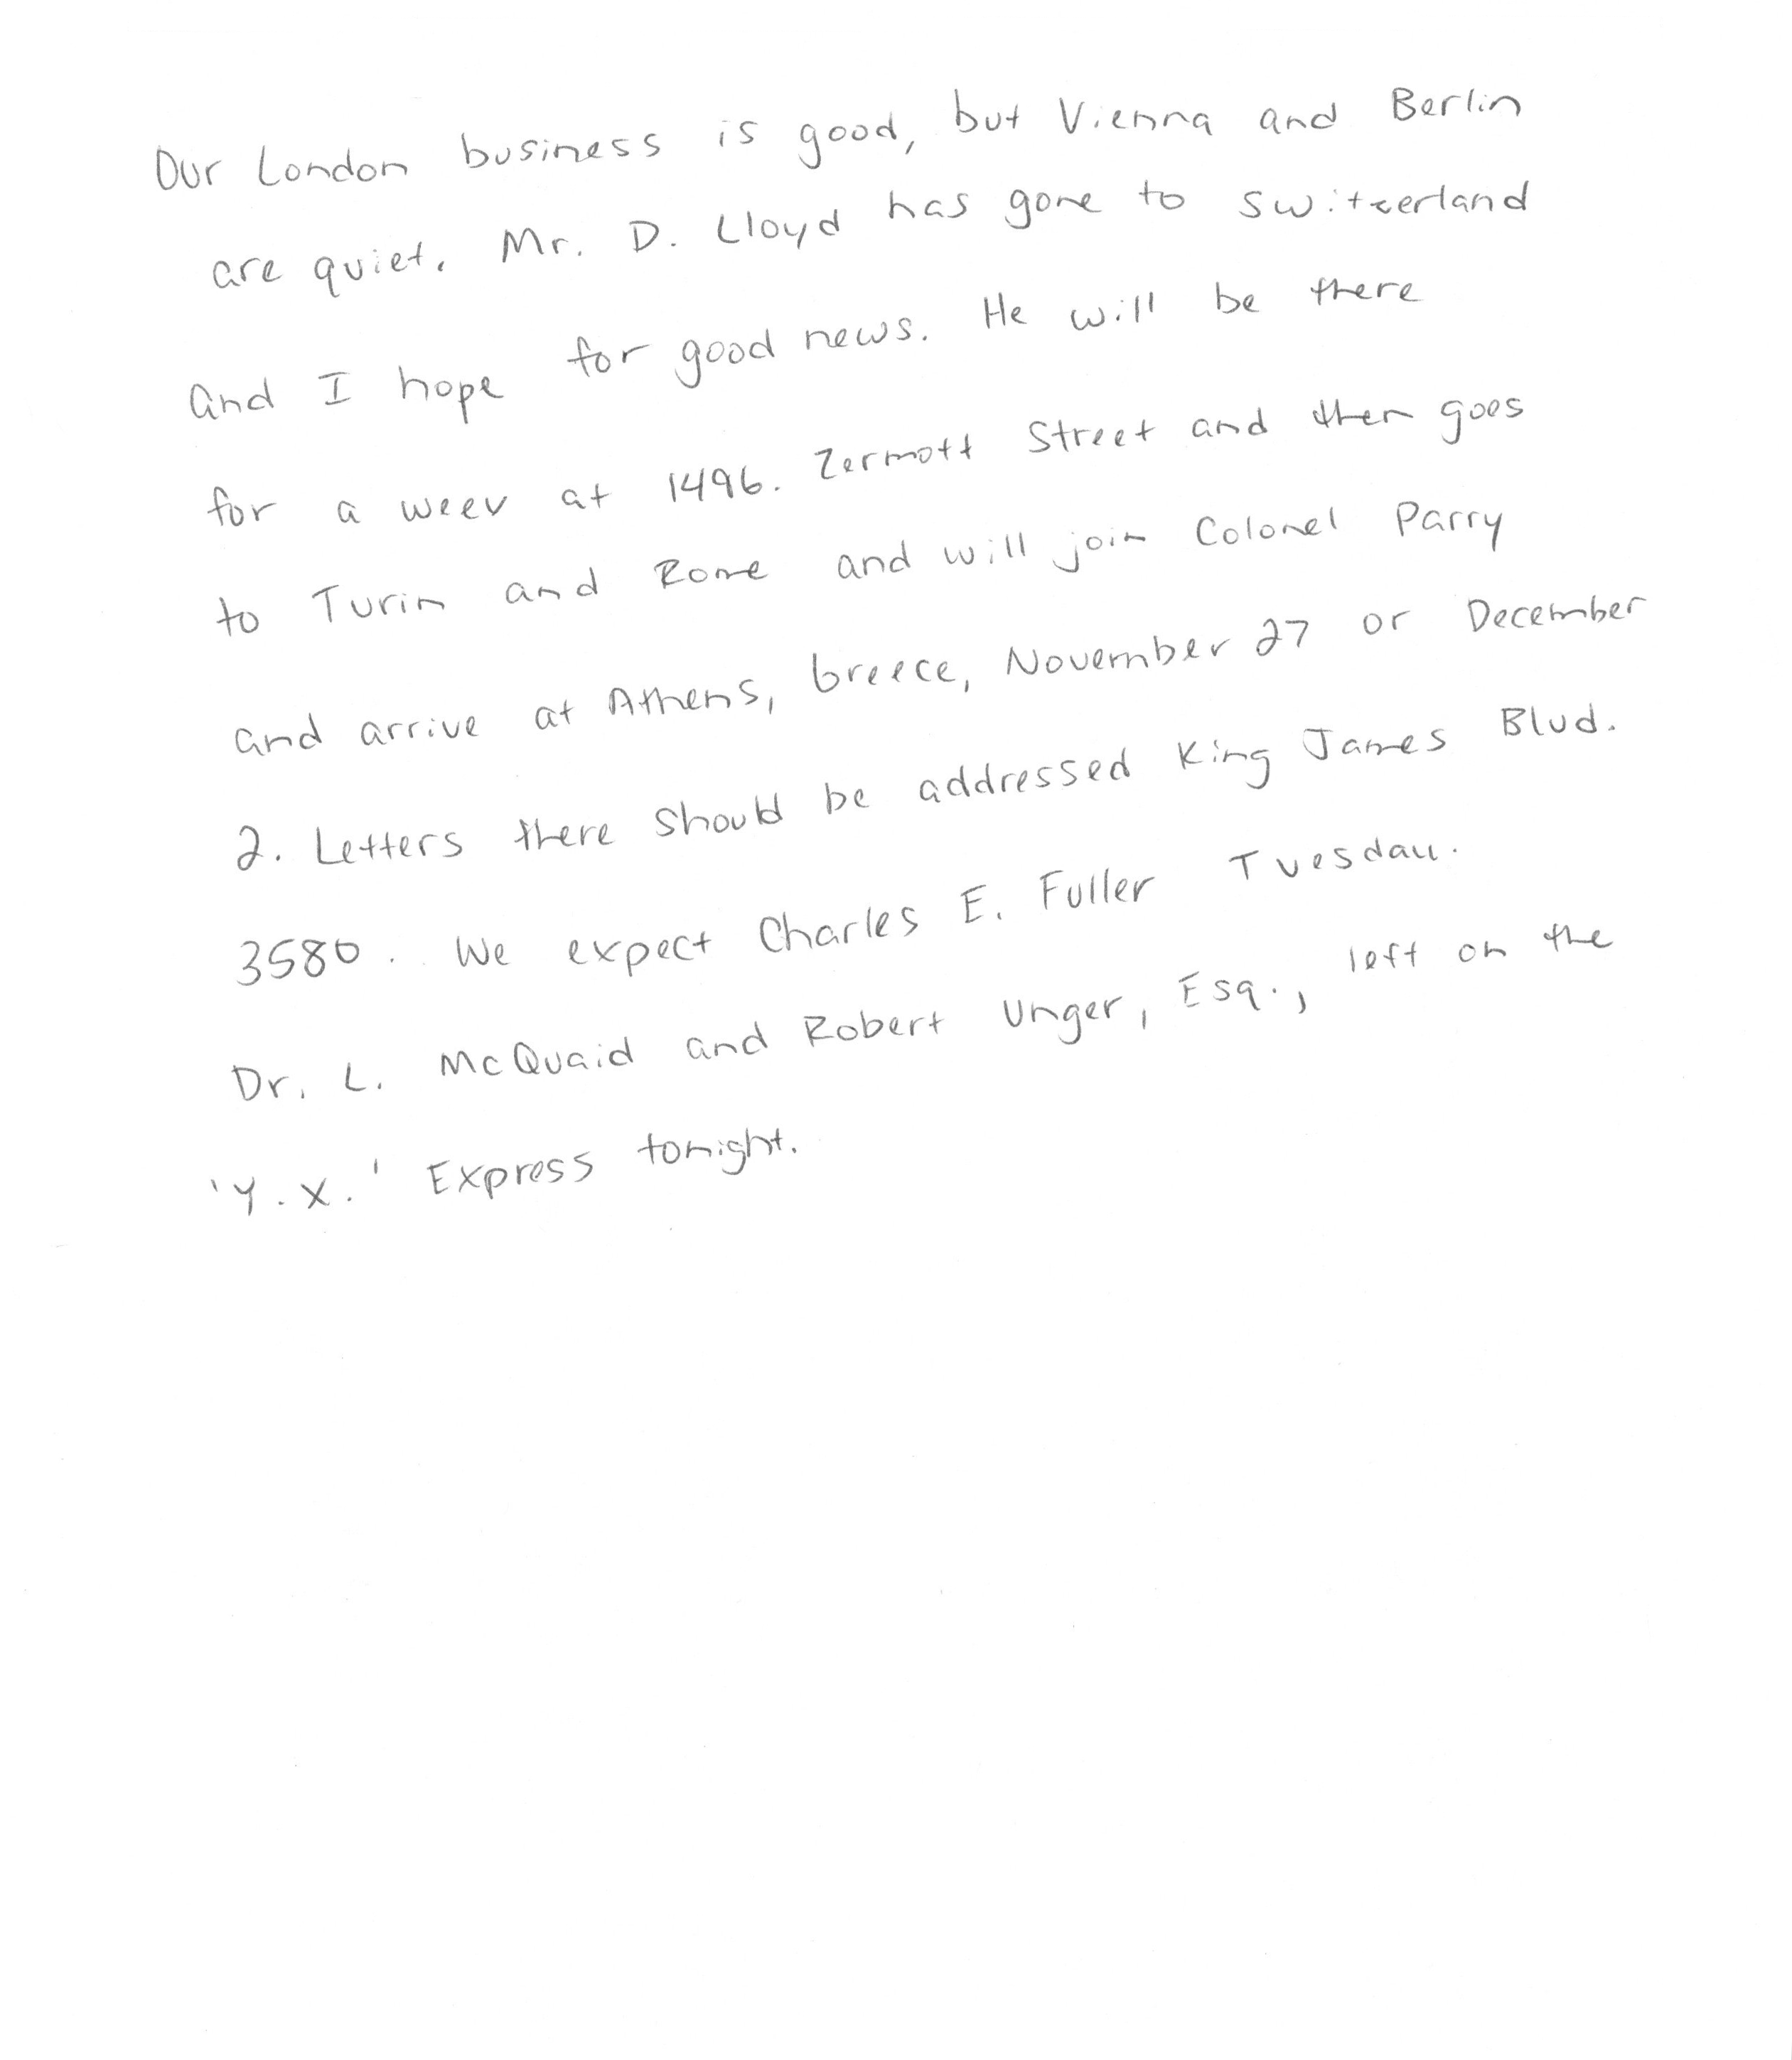 Our London business is good, but Vienna and Berlin
are quiet. Mr. D. Lloyd has gone to Switzerland
and I hope for good news. He will be there
for a week at 1496. Zermott Street and then goes
to Turin and Rome and will join Colonel Parry
and arrive at Athens, Greece, November 27 or December
2. Letters there should be addressed King James Blvd.
3580. We expect Charles E. Fuller Tuesday.
Dr. L. McQuaid and Robert Unger, Esq., left on the
'Y.X.' Express tonight.